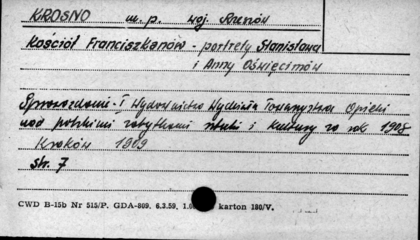 KROSNO m. p. woj. Rzeszów
Kościół Franciszkanów - portrety Stanisława
i Anny Oświęcimów
Sprawozdanie I Wydawnictwo Wydziału Towarzystwa Opieki
nad polskimi zabytkami sztuki i kultury za rok 1908
Kraków 1909
str. 7
CWD B-15b Nr 515/P. GDA-809. 6.3.59. karton 180/V.